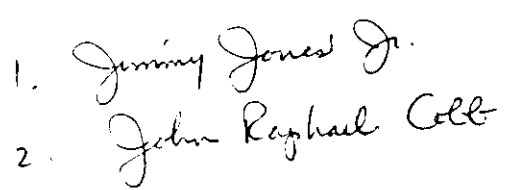 1. Jimmy Jones Jr.
2. John Raphael Cobb